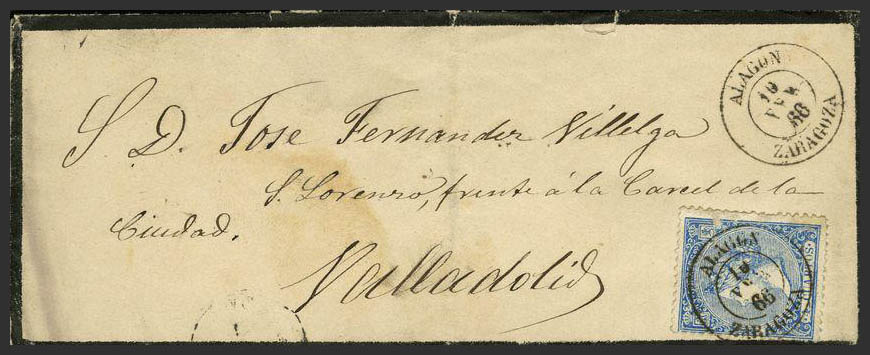 ALAGON
10
FEB.
66
ZARAGOZA
S. D. Jose Fernandez Villelga
S. Lorenzo, frente á la Carcel de la
Ciudad.
Valladolid
ALAGON
10
FEB
66
ZARAGOZA